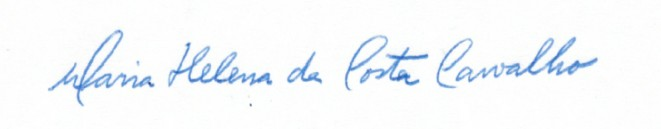 Maria Helena da Costa Carvalho